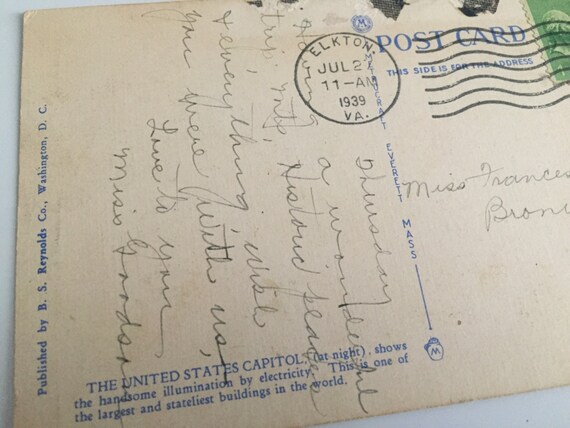 POST CARD
THIS SIDE IS FOR THE ADDRESS
ELKTON,
JUL 27
11-AM
1939
VA.
METROCRAFT EVERETT MASS
Miss Frances
Thursday
Having a wonderful
trip, Mts, Historic
& everything wish
you were with us,
Love to you
Miss
Published by B. S. Reynolds Co., Washington, D. C.
THE UNITED STATES CAPITOL, (at night), shows
the handsome illumination by electricity. This is one of
the largest and stateliest buildings in the world.